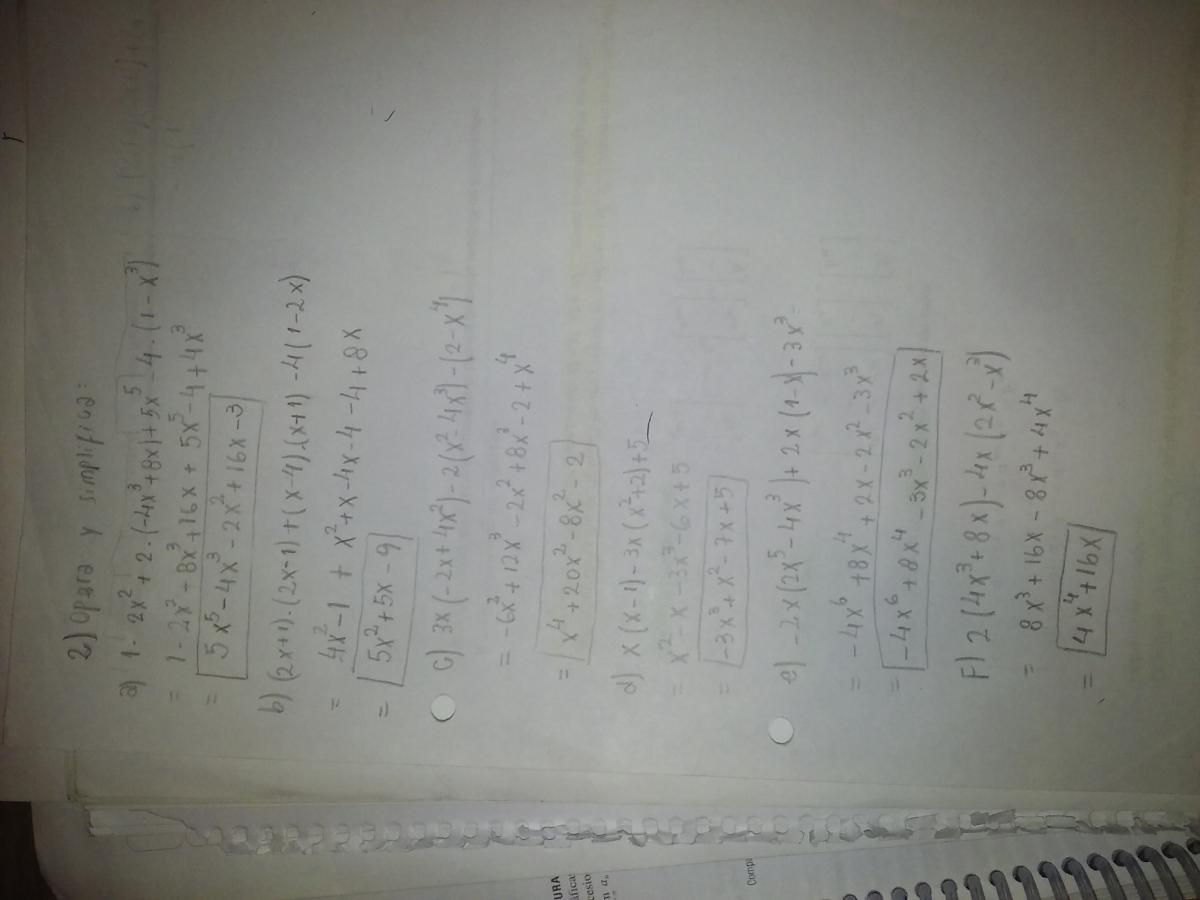 2) Opera y simplifica:
a) 1 - 2x² + 2 · (-4x³ + 8x) + 5x⁵ - 4 · (1 - x³)
= 1 - 2x² - 8x³ + 16x + 5x⁵ - 4 + 4x³
= 5x⁵ - 4x³ - 2x² + 16x - 3
b) (2x+1) · (2x-1) + (x-4) · (x+1) - 4(1-2x)
= 4x² - 1 + x² + x - 4x - 4 - 4 + 8x
= 5x² + 5x - 9
c) 3x(-2x + 4x²) - 2(x² - 4x³) - (2 - x⁴)
= -6x² + 12x³ - 2x² + 8x³ - 2 + x⁴
= x⁴ + 20x² - 8x² - 2
d) x(x-1) - 3x(x²+2) + 5
= x² - x - 3x³ - 6x + 5
= -3x³ + x² - 7x + 5
e) -2x(2x⁵ - 4x³) + 2x(1-x) - 3x³
= -4x⁶ + 8x⁴ + 2x - 2x² - 3x³
= -4x⁶ + 8x⁴ - 3x³ - 2x² + 2x
F) 2(4x³ + 8x) - 4x(2x² - x³)
= 8x³ + 16x - 8x³ + 4x⁴
= 4x⁴ + 16x
URA